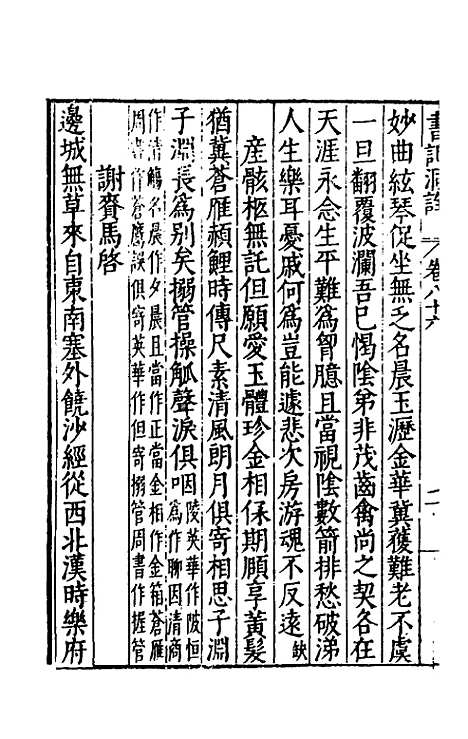 書記洞詮 卷八十六 二
妙曲絃琴促坐無乏名晨玉瀝金華冀獲難老不虞
一旦翻覆波瀾吾已愒陰弟非茂齒禽尚之契各在
天涯永念生平難為胷臆且當視陰數箭排愁破涕
人生樂耳憂戚何為豈能遽悲次房游魂不反遠缺
產骸柩無託但願愛玉體珍金相保期願享黃髮
猶冀蒼雁頳鯉時傳尺素清風朗月俱寄相思子淵
子淵長為別矣搦管操觚聲淚俱咽陵英華作陂恒為作聊因清商
作清觴名晨作夕晨且當作正當金相作金箱蒼雁
周書作蒼鷹誤俱寄英華作但寄搦管周書作握管
謝賚馬啓
邊城無草來自東南塞外饒沙經從西北漢時樂府